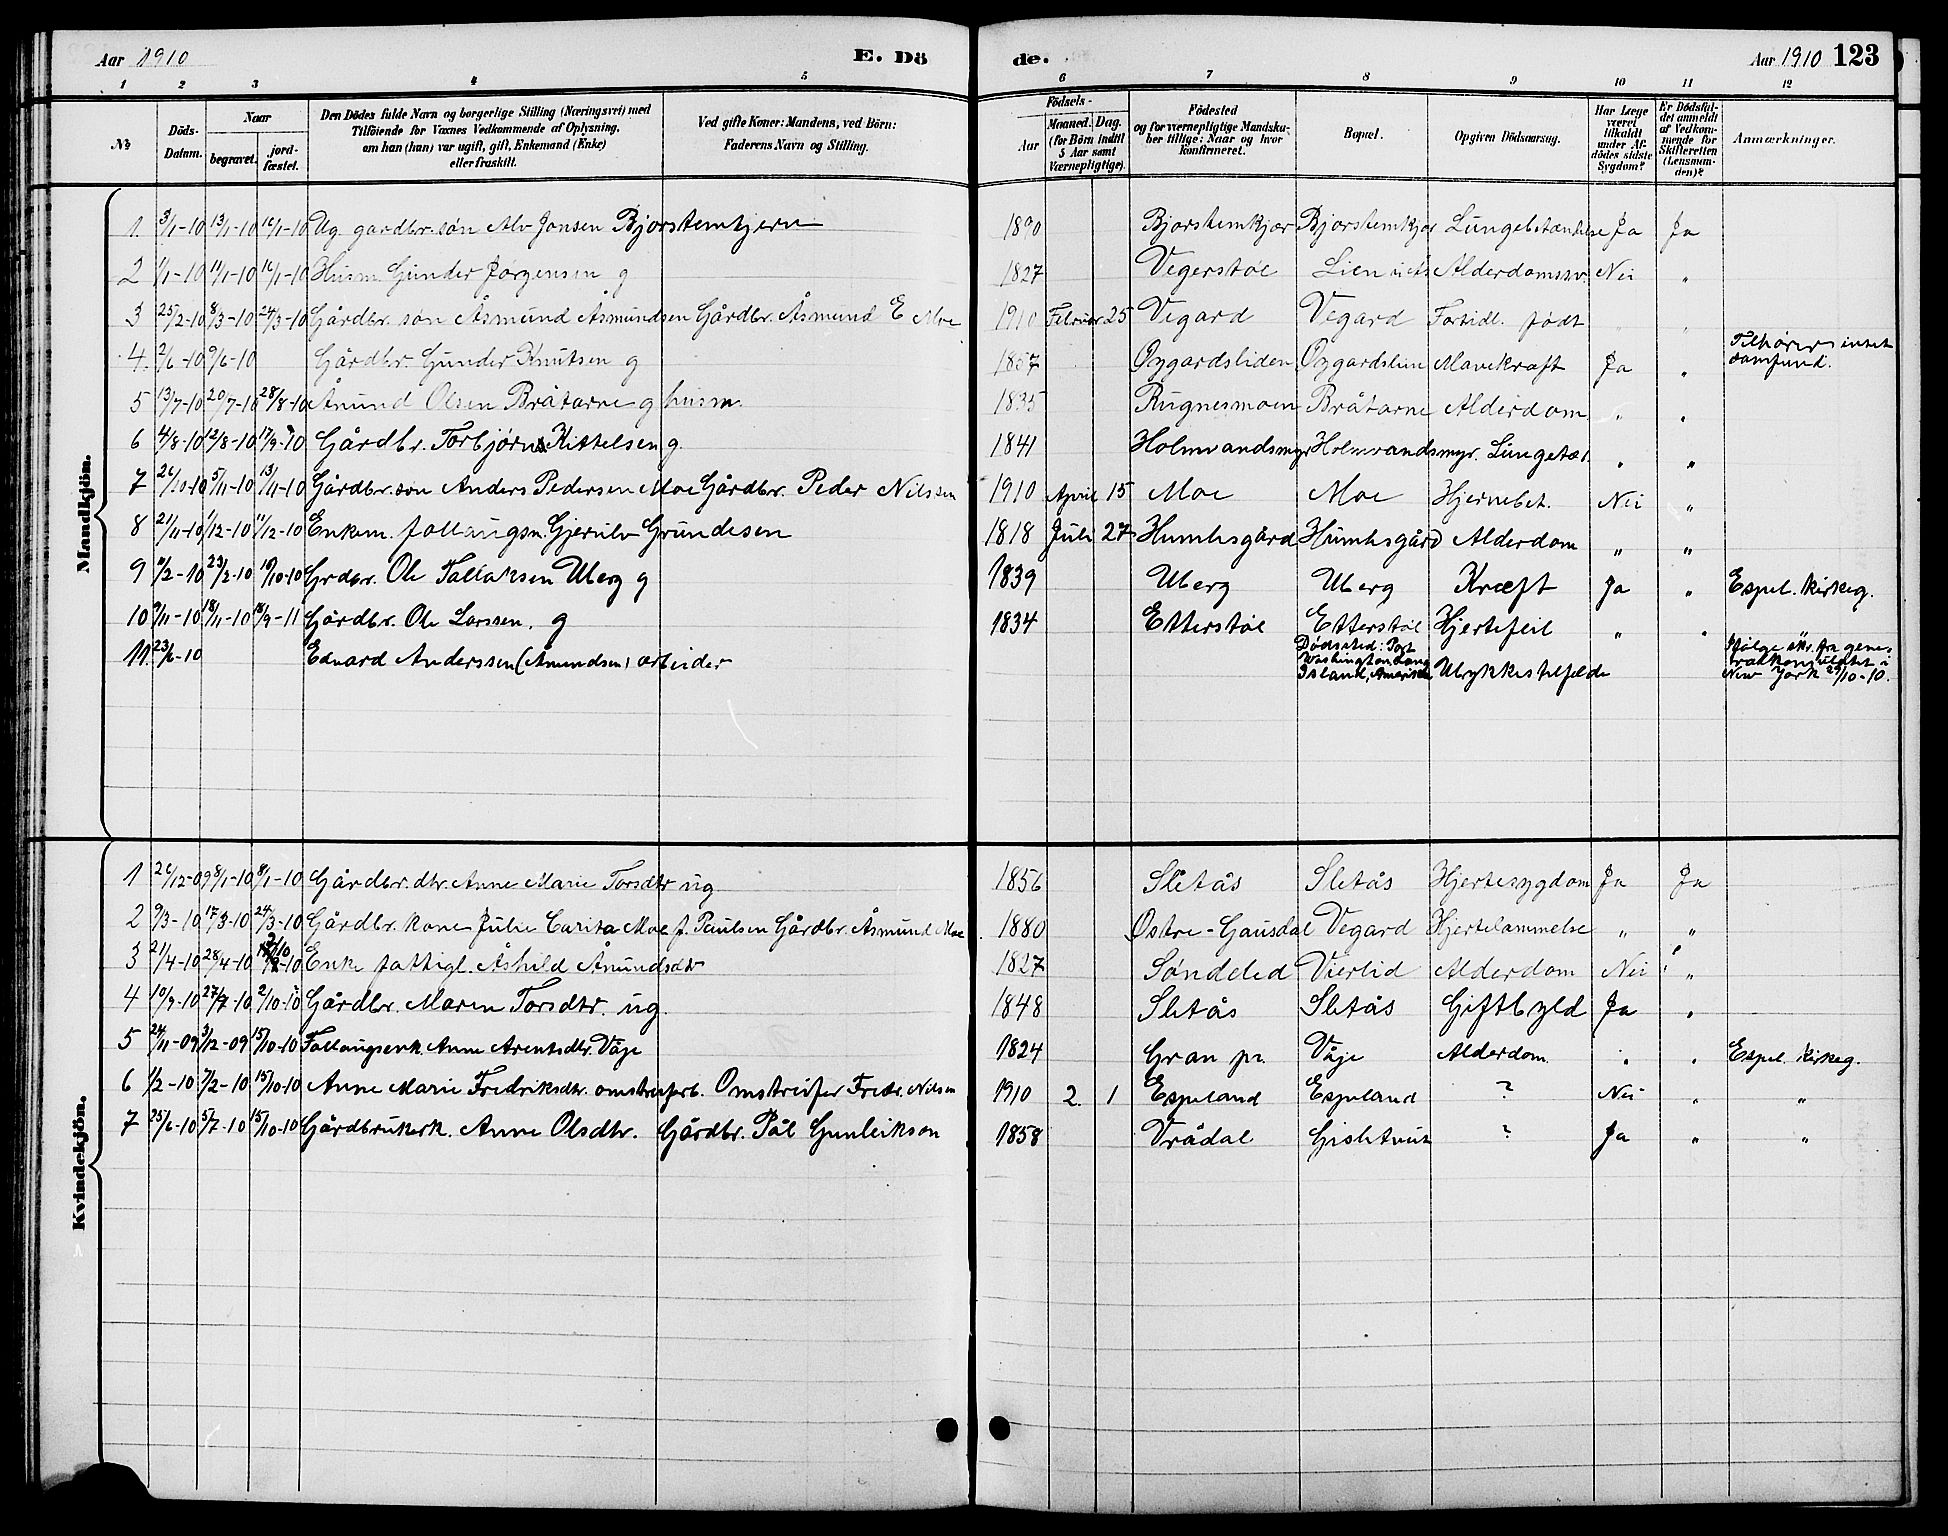 Aar 1910 E. Dö de. Aar 1910 123
1 2 3 4 5 6 7 8 9 10 11 12
№ Döds-Datum. Naar begravet. jord-fæstet. Den Dödes fulde Navn og borgerlige Stilling (Næringsvei) med Tilföiende for Voxnes Vedkommende af Oplysning, om han (hun) var ugift, gift, Enkemand (Enke) eller fraskilt. Ved gifte Koner: Mandens, ved Börn: Faderens Navn og Stilling. Födsels- Aar Maaned. Dag. (for Börn indtil 5 Aar samt Værnepligtige). Födested og for værnepligtige Mandskaber tillige: Naar og hvor Konfirmeret. Bopæl. Opgiven Dödsaarsag. Har Læge været tilkaldt under Afdödes sidste Sygdom? Er Dödsfaldet anmeldt af Vedkommende for Skifteretten (Lensmanden)? Anmærkninger.
Mandkjön.
1. 3/1-10 13/1-10 16/1-10 Ug gardbr. søn Alv Jonsen Bjorstemkjern 1890 Bjorstemkjær Bjorstemkjær Lungebetændelse Ja Ja
2 1/1-10 11/1-10 16/1-10 Husm. Gunder Jørgensen g 1827 Vegerstøl Lien Alderdomssv. Nei "
3 25/2-10 8/3-10 24/3-10 Gårdbr. søn Åsmund Åsmundsen Gårdbr. Åsmund E Moe 1910 Februar 25 Vegard Vegard Fortidl. født " "
4. 2/6-10 9/6-10 Gårdbr. Gunder Knutsen g 1857 Øygardsliden Øygardslien Mavekræft Ja " Tilhører intet samfund.
5 13/7-10 20/7-10 28/8-10 Ånund Olsen Bråtane g husm. 1835 Rugnesmoen Bråtane Alderdom " "
6 4/8-10 12/8-10 17/9-10 Gårdbr. Torbjørn Kittelsen g. 1841 Holmvandsmyr Holmvandsmyr. Lungetær. " "
7 26/10-10 5/11-10 13/11-10 Gårdbr. søn Anders Pedersen Moe Gårdbr. Peder Nilssen 1910 April 15 Moe Moe Hjernebet. Nei "
8 21/11-10 1/12-10 11/12-10 Enkem. fattaugsm. Gjerulv Grundesen 1818 Juli 27 Humlesgård Humlesgård Alderdom " "
9 11/2-10 23/2-10 19/10-10 Grdbr. Ole Tallaksen Uberg g 1839 Uberg Uberg Kræft Ja " Espel. kirkeg.
10 9/11-10 18/11-10 18/9-11 Gårdbr. Ole Larssen. g 1834 Etterstøl Etterstøl Hjertefeil " "
11. 23/6-10 Edvard Anderssen (Åmundsen) arbeider Dødssted: Port Washington Long Island, Amerika Ulykkestilfelde Ifølge skr. fra generalkonsulatet i New York 29/10-10.
Kvindekjön.
1 26/12-09 8/1-10 8/1-10 Gårdbr. dtr. Anne Marie Torsdtr ug 1856 Sletås Sletås Hjertesygdom Ja Ja
2 9/3-10 17/3-10 24/3-10 Gårdbr. kone Julie Carita Moe f. Paulsen Gårdbr. Åsmund Moe 1880 Østre-Gausdal Vegard Hjertelammelse " "
3 21/4-10 28/4-10 2/10-10 Enke fattigl. Åshild Ånundsdtr 1827 Søndeled Vierlid Alderdom Nei "
4 19/9-10 27/9-10 2/10-10 Gårdbr. Maren Torsdtr. ug. 1848 Sletås Sletås Giftbyld Ja "
5 24/11-09 3/12-09 15/10-10 Fattaugsenk. Anne Arentsdtr. Våje 1824 Gran pr. Våje Alderdom " " Espel. kirkeg.
6 1/2-10 7/2-10 15/10-10 Anne Marie Fredriksdtr. omstreiferb. Omstreifer Fredr. Nilsen 1910 2. 1 Espeland Espeland ? Nei " "
7 25/6-10 5/7-10 15/10-10 Gårdbrukerk. Anne Olsdtr. Gårdbr. Pål Gunleikson 1858 Vrådal ? Ja " "